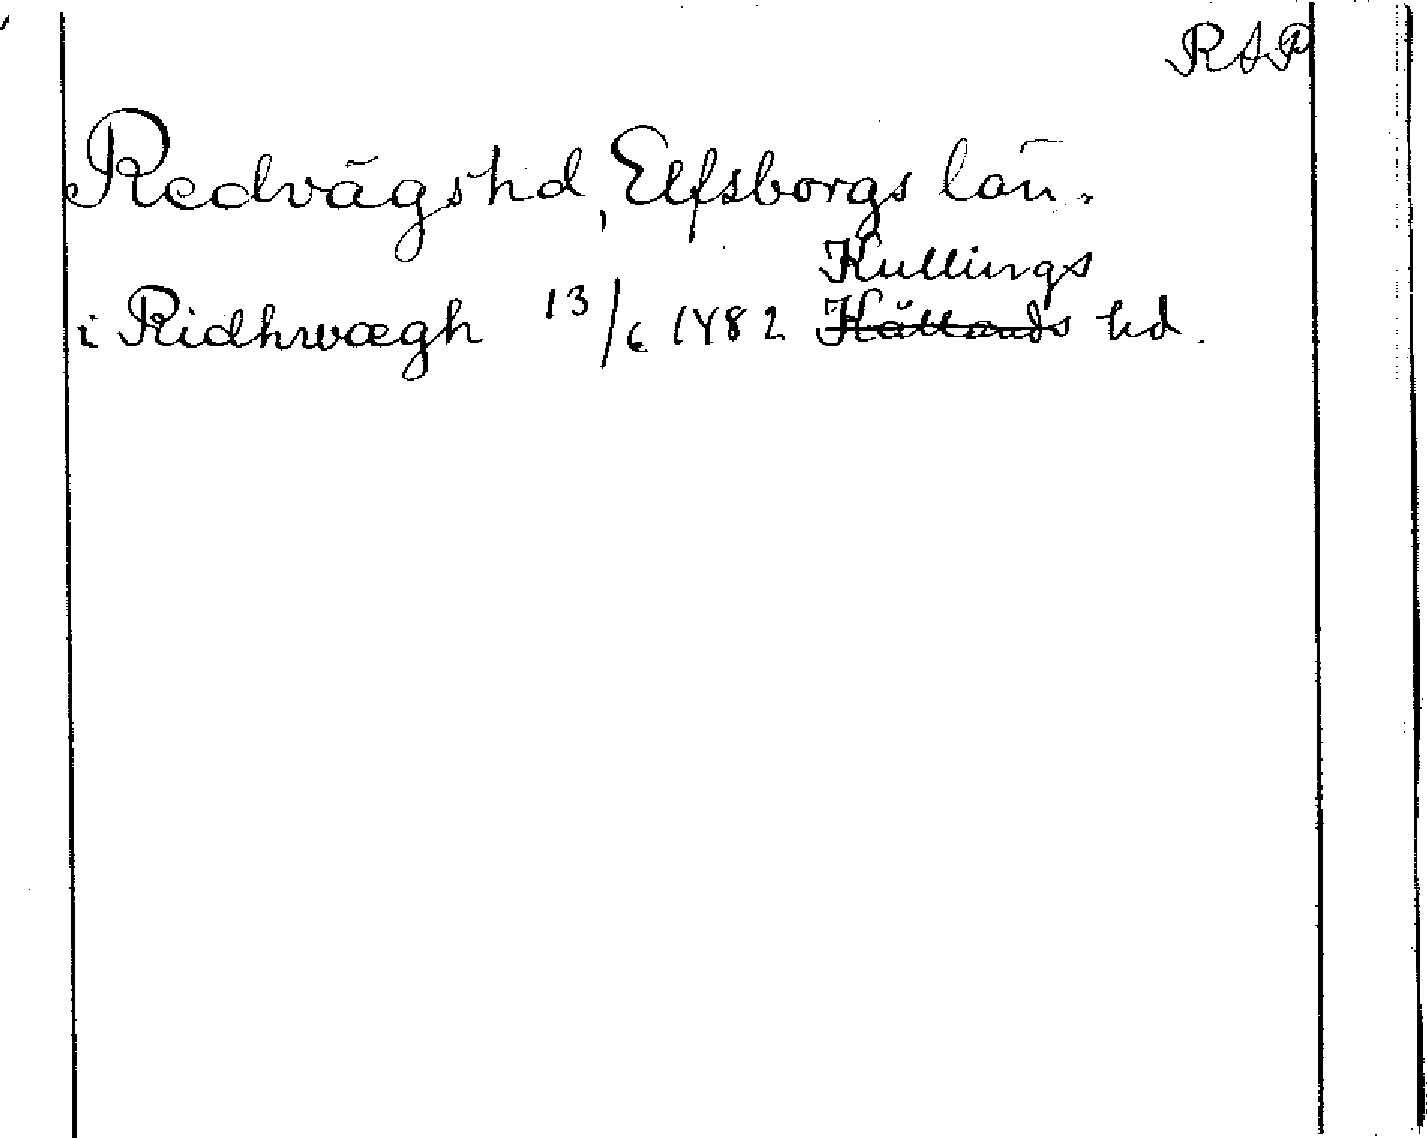 RAP
Redvägs hd, Elfsborgs län.
Kullings
i Ridhwægh 13/6 1482 Kållands hd.